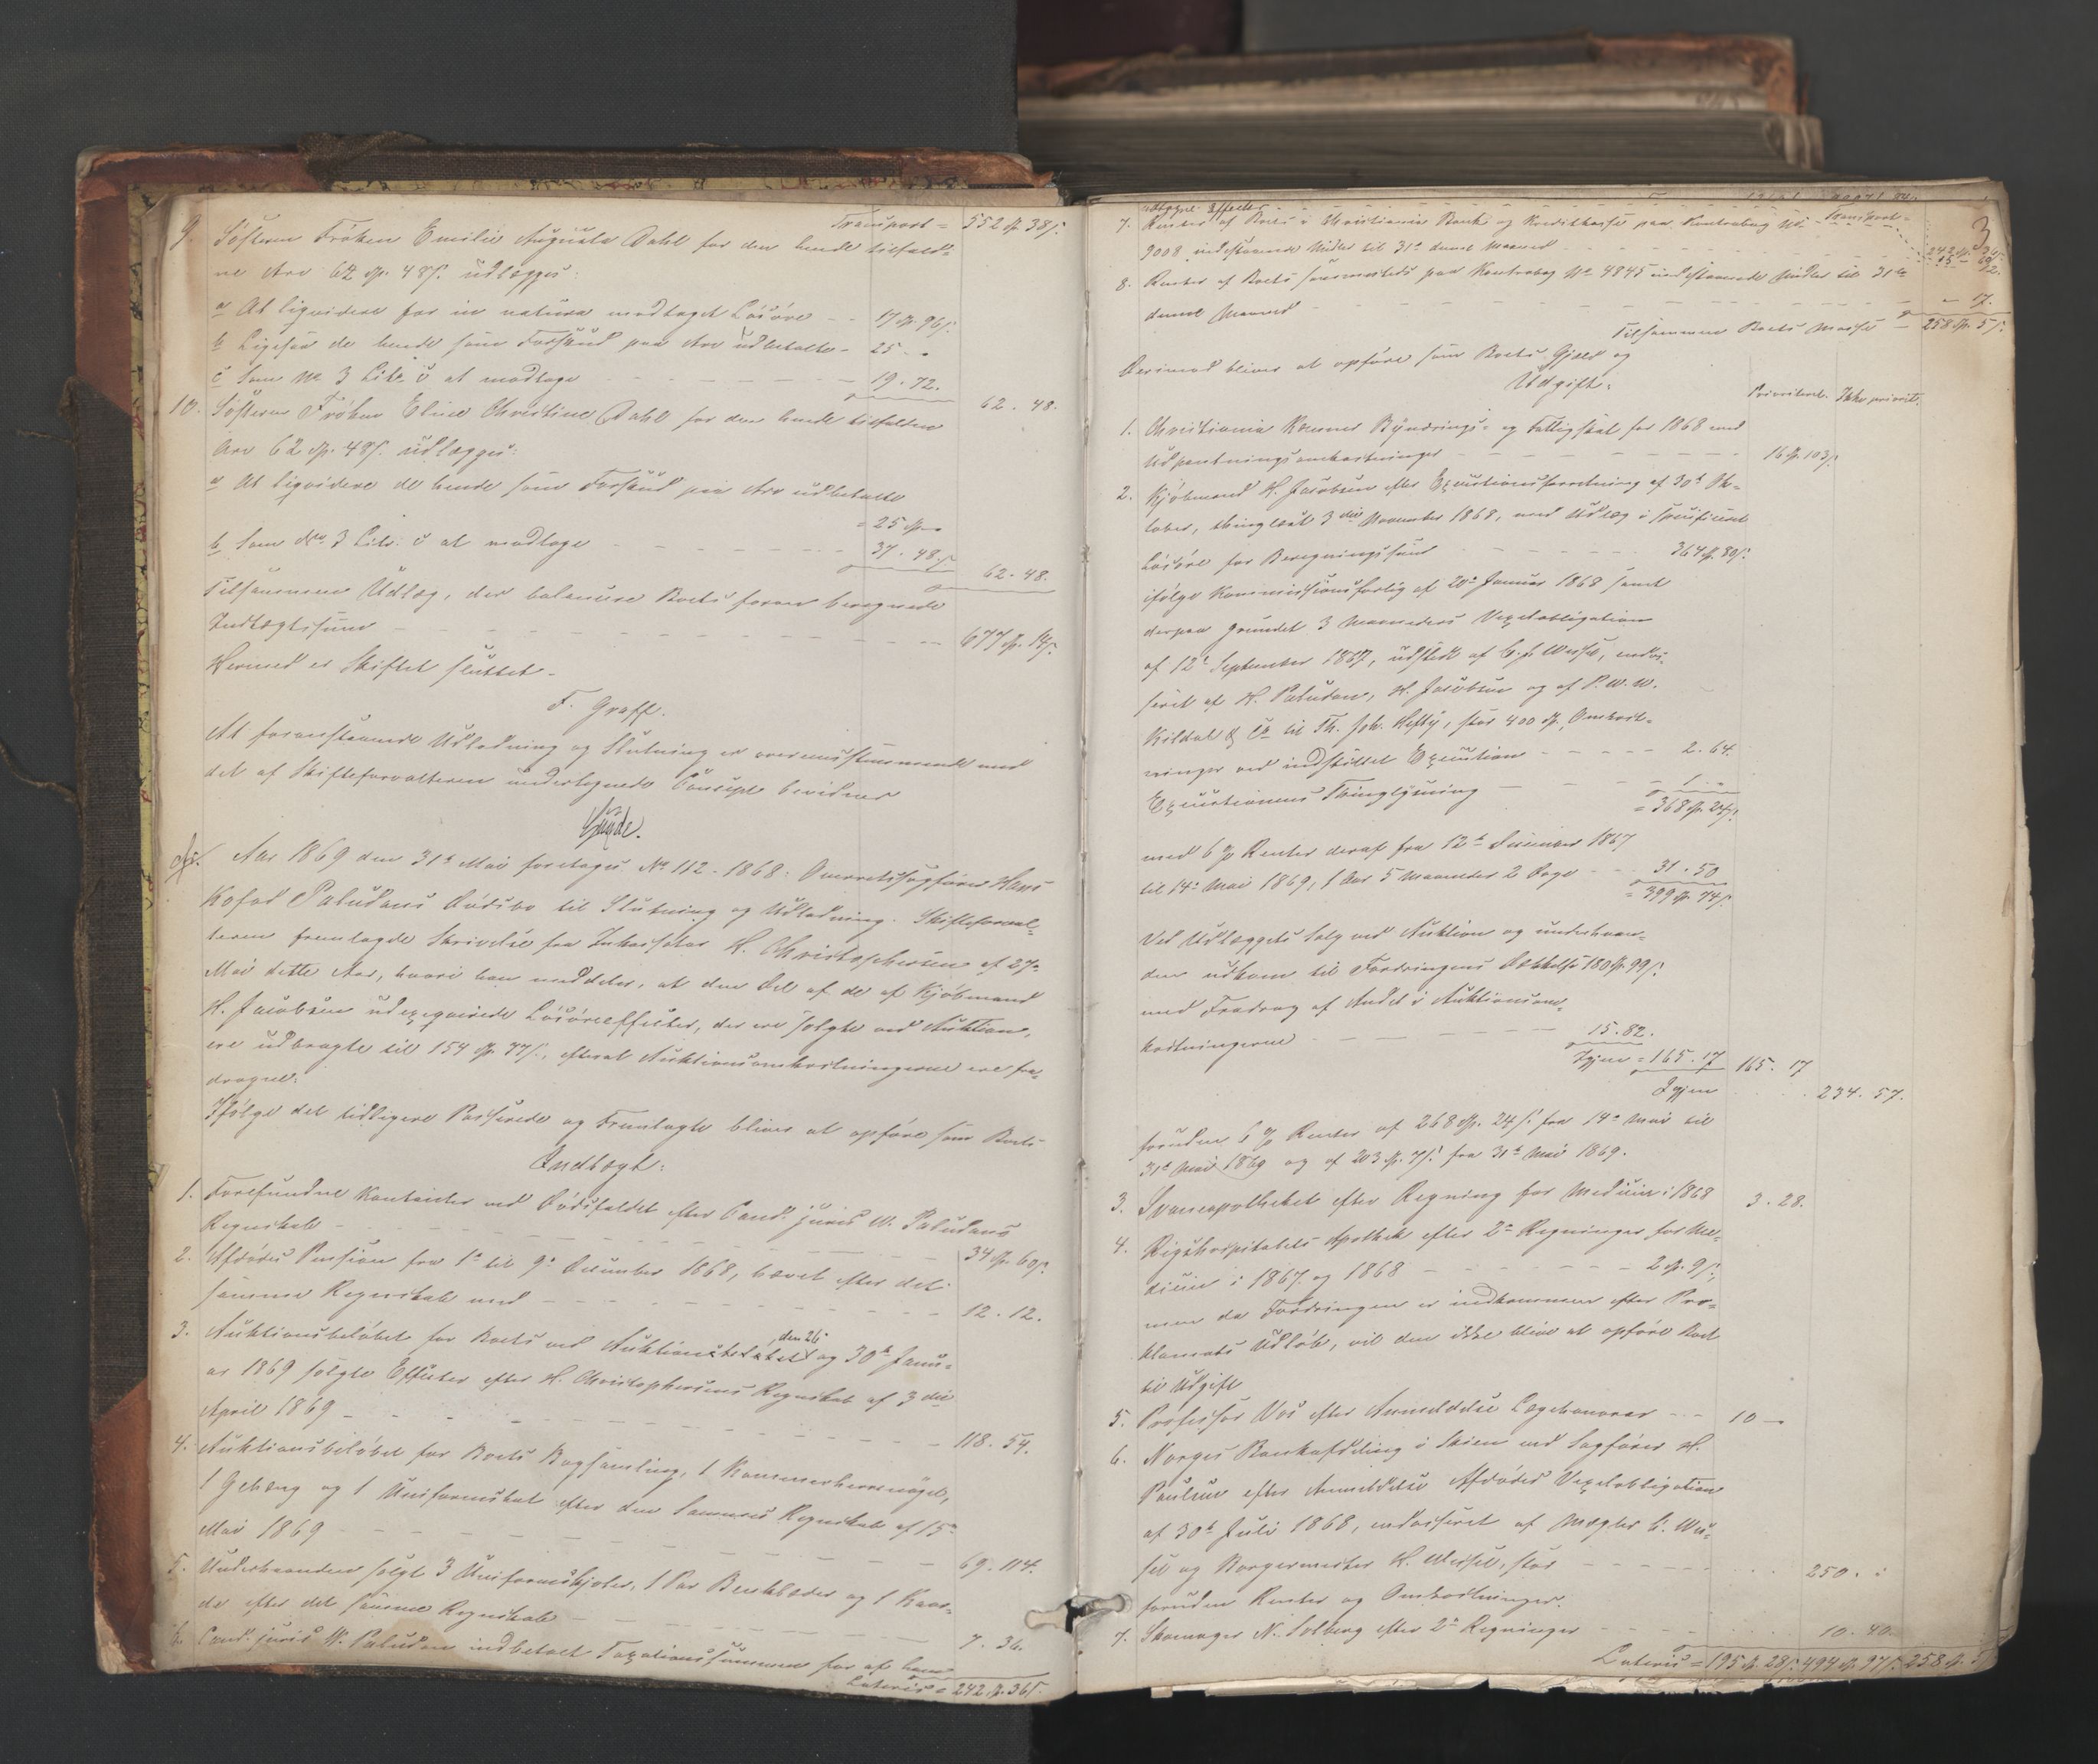 Transport = 552 Sp. 38 s.
9. Søsteren Frøken Emilie Augusta Dahl for den hende tilfald=
ne Arv 62 Sp. 48 s. udlægges:
a At liqvidere for in natura modtaget Løsøre - - 17 Sp. 96 s.
b Ligesaa de hende som Forskud paa Arv udbetalte - 25 - "
c Som No 3 Litr. c at modtage - - - 19. 72.
62. 48.
10. Søsteren Frøken Eline Christine Dahl for den hende tilfaldne
Arv 62 Sp. 48 s. udlægges:
a At liqvidere de hende som Forskud paa Arv udbetalte
= 25 Sp. "
b Som No. 3 Litr. c at modtage - - - 37. 48 s.
62. 48.
Tilsammen Udlæg, der balancere Boets foran beregnede
Indtægtssum - - - 677 Sp. 14 s.
Hermed er Skiftet sluttet.
F. Graff.
At foranstaaende Udlodning og Slutning er overensstemmende med
det af Skifteforvalteren undertegnede Concept bevidnes
Aar 1869 den 31te Mai foretoges No 112 - 1868: Overretssagfører Hans
Kofod Paludans Dødsbo til Slutning og Udlodning. Skifteforval=
teren fremlagde Skrivelse fra Inkassator H. Christophersen af 27de
Mai dette Aar, hvori han meddeler, at den Del af de af Kjøbmand
H. Jacobsen udexeqverede Løsøreeffecter, der ere solgte ved Auktion,
ere udbragte til 154 Sp. 77 s., efterat Auktionsomkostningerne ere fra=
dragne.
Ifølge det tidligere Passerede og Fremlagte bliver at opføre som Boets
Indtægt:
1. Forefundne Kontanter ved Dødsfaldet efter Cand. juris W. Paludans
Regnskab - - - 34 Sp. 60 s.
2. Afdødes Pension fra 1ste til 9de December 1868, hævet efter det
samme Regnskab med - - - 12. 12.
3. Auktionsbeløbet for Boets ved Auktion den 26de og 30te Janu=
ar 1869 solgte Effecter efter H. Christophersens Regnskab af 3die
April 1869 - - - 118. 54.
4. Auktionsbeløbet for Boets Bogsamling, 1 Kammerherrenøgel,
1 Gehæng og 1 Uniformshat efter den Sammes Regnskab af 15de
Mai 1869 - - - 69. 114.
5. Underhaanden solgt 3 Uniformskjoler, 1 Par Benklæder og 1 Kaar=
de efter det samme Regnskab - - - 7. 36.
6. Cand. juris W. Paludan indbetalt Taxationssummen for af ham
Lateris = 242 Sp. 36 s.
3
Transport =
242 Sp. 36 s.
7. Renter af Boets i Christiania Bank og Kreditkasse paa Kontrabog No
9008 indestaaende Midler til 31te denne Maaned
8. Renter af Boets sammesteds paa Kontrabog No 4845 indestaaende Midler til 31te
denne Maaned - - - " 17.
Tilsammen Boets Masse = 258 Sp. 5 s.
Derimod bliver at opføre som Boets Gjæld og
Udgift:
Prioriteret. Ikke priorit.
1. Christiania Kæmner Bynærings- og Fattigskat for 1868 med
Udpantningsomkostninger - - - 16 Sp. 103 s.
2. Kjøbmand H. Jacobsen efter Exectionsforretning af 30te Ok=
tober, thinglæst 3die November 1868, med Udlæg i specificeret
Løsøre for Beregningssum - - - 364 Sp. 80 s.
ifølge Kommissionsforlig af 20de Januar 1868 samt
derpaa grundet 3 Maaneders Vexelobligation
af 12te September 1867, udstedt af C. F. Wesse, endos=
seret af H. Paludan, H. Jacobsen og af P. W. W.
Kildal & Co til Th. Joh. Heftÿ, stor 400 Sp., Omkost=
ninger ved indstillet Execution - - - 2. 64.
Executionens Thinglysning - - - 1. "
= 368 Sp. 24 s.
med 6 % Renter deraf fra 12te December 1867
til 14de Mai 1869, 1 Aar 5 Maaneder 2 Dage - - 31. 50
= 399 Sp. 74 s.
Ved Udlæggets Salg ved Auktion og underhaan=
den udkom til Fordringens Dækkelse 180 Sp. 99 s.
med Fradrag af Andel i Auktionsom=
kostningerne - - - 15. 82.
Igjen = 165. 17 165. 17
Igjen 234. 57.
foruden 6 % Renter af 268 Sp. 24 s. fra 14de Mai til
31te Mai 1869 og af 203 Sp. 7 s. fra 31te Mai 1869.
3. Svaneapotheket efter Regning for Medicin i 1868 3. 28.
4. Rigshospitalets Apothek efter 2de Regninger for Me=
dicin i 1867 og 1868 - - - 2 Sp. 9 s.,
men da Fordringen er indkommen efter Pro=
klamats Udløb, vil den ikke blive at opføre Boet
til Udgift
5. Professor Vos efter Anmeldelse Lægehonorar - - - 10 - "
6. Norges Bankafdeling i Skien ved Sagfører H.
Paulsen efter Anmeldelse Afdødes Vexelobligation
af 30te Juli 1868, endosseret af Mægler C. We=
sel og Borgermester H. Wessel, stor - - - 250. "
foruden Renter og Omkostninger.
7. Skomager N. Solberg efter 2de Regninger - - - 10. 40.
Lateris = 195 Sp. 28 s. 494 Sp. 97 s. 258 Sp. 5